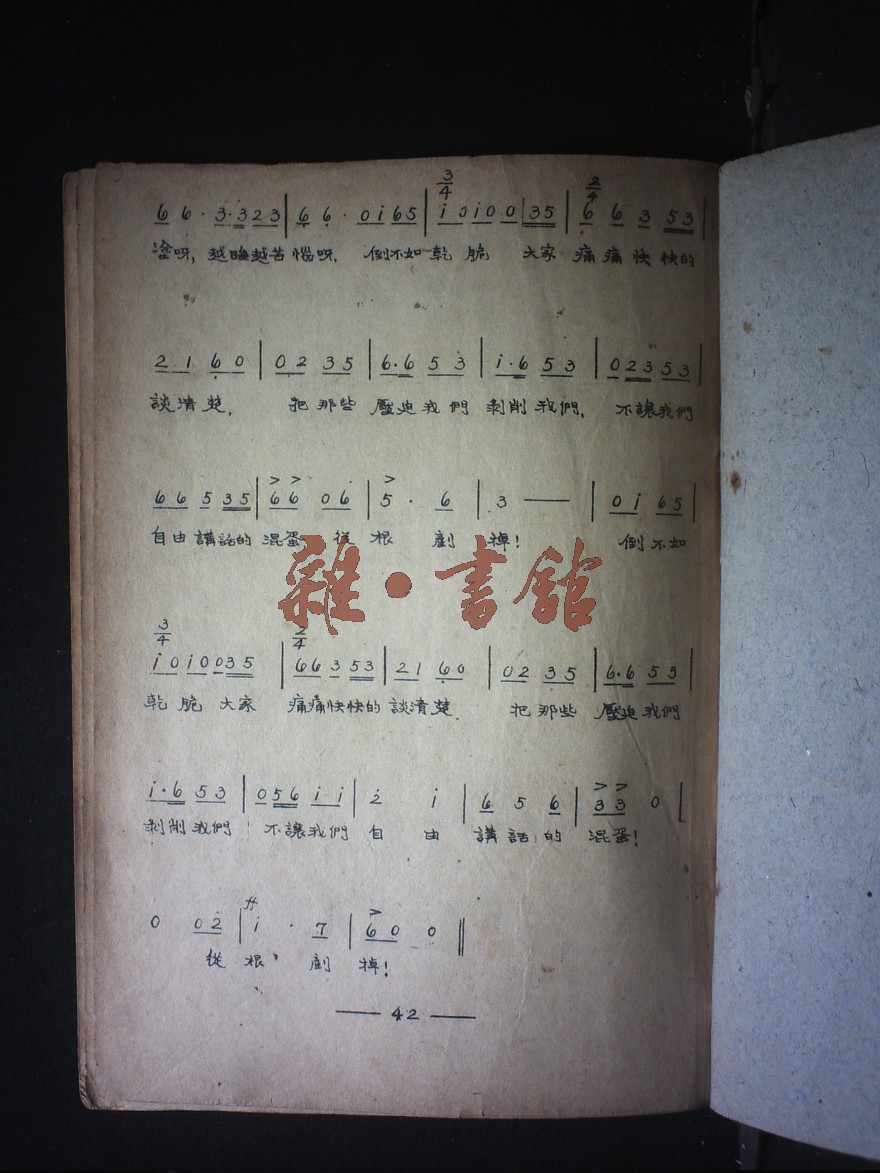 3/4 2/4
6 6 · 3·3 2 3 | 6 6 · 0 i 6 5 | i 0 i 0 0 3 5 | 6 6 3 5 3 |
塗呀, 越睡越苦惱呀, 倒不如乾脆 大家 痛痛快快的
2 1 6 0 | 0 2 3 5 | 6·6 5 3 | i·6 5 3 | 0 2 3 5 3 |
談清楚, 把那些 壓迫我們 剥削我們, 不讓我們
6 6 5 3 5 | 6 6 0 6 | 5 · 6 | 3 — | 0 i 6 5 |
自由講話的混蛋, 從根剷掉! 倒不如
3/4 2/4
i 0 i 0 0 3 5 | 6 6 3 5 3 | 2 1 6 0 | 0 2 3 5 | 6·6 5 3 |
乾脆大家 痛痛快快的談清楚. 把那些 壓迫我們
i·6 5 3 | 0 5 6 i i | 2 i | 6 5 6 | 3 3 0 |
剥削我們 不讓我們 自由 講話的 混蛋!
ff
0 0 2 | i · 7 | 6 0 0 ‖
從根 剷掉!
— 42 —
雜·書館